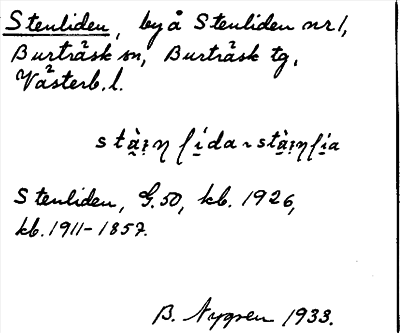 Stenliden, by å Stenliden nr 1,
Burträsk sn, Burträsk tg,
Västerb. l.
stą̀i̯η li̯da ~ stą̀i̯ηli̯a
Stenliden, G.50, kb. 1926,
kb. 1911-1857.
B. Nygren 1933.